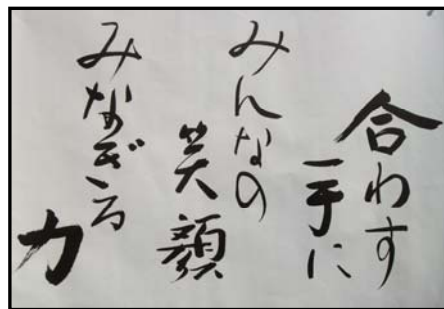 合わす
手に
みんなの
笑顔
みなぎる
力